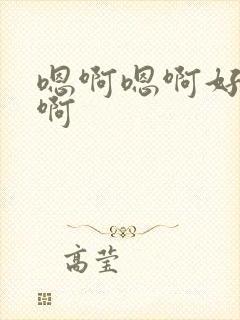 嗯啊嗯啊好
啊
高莹